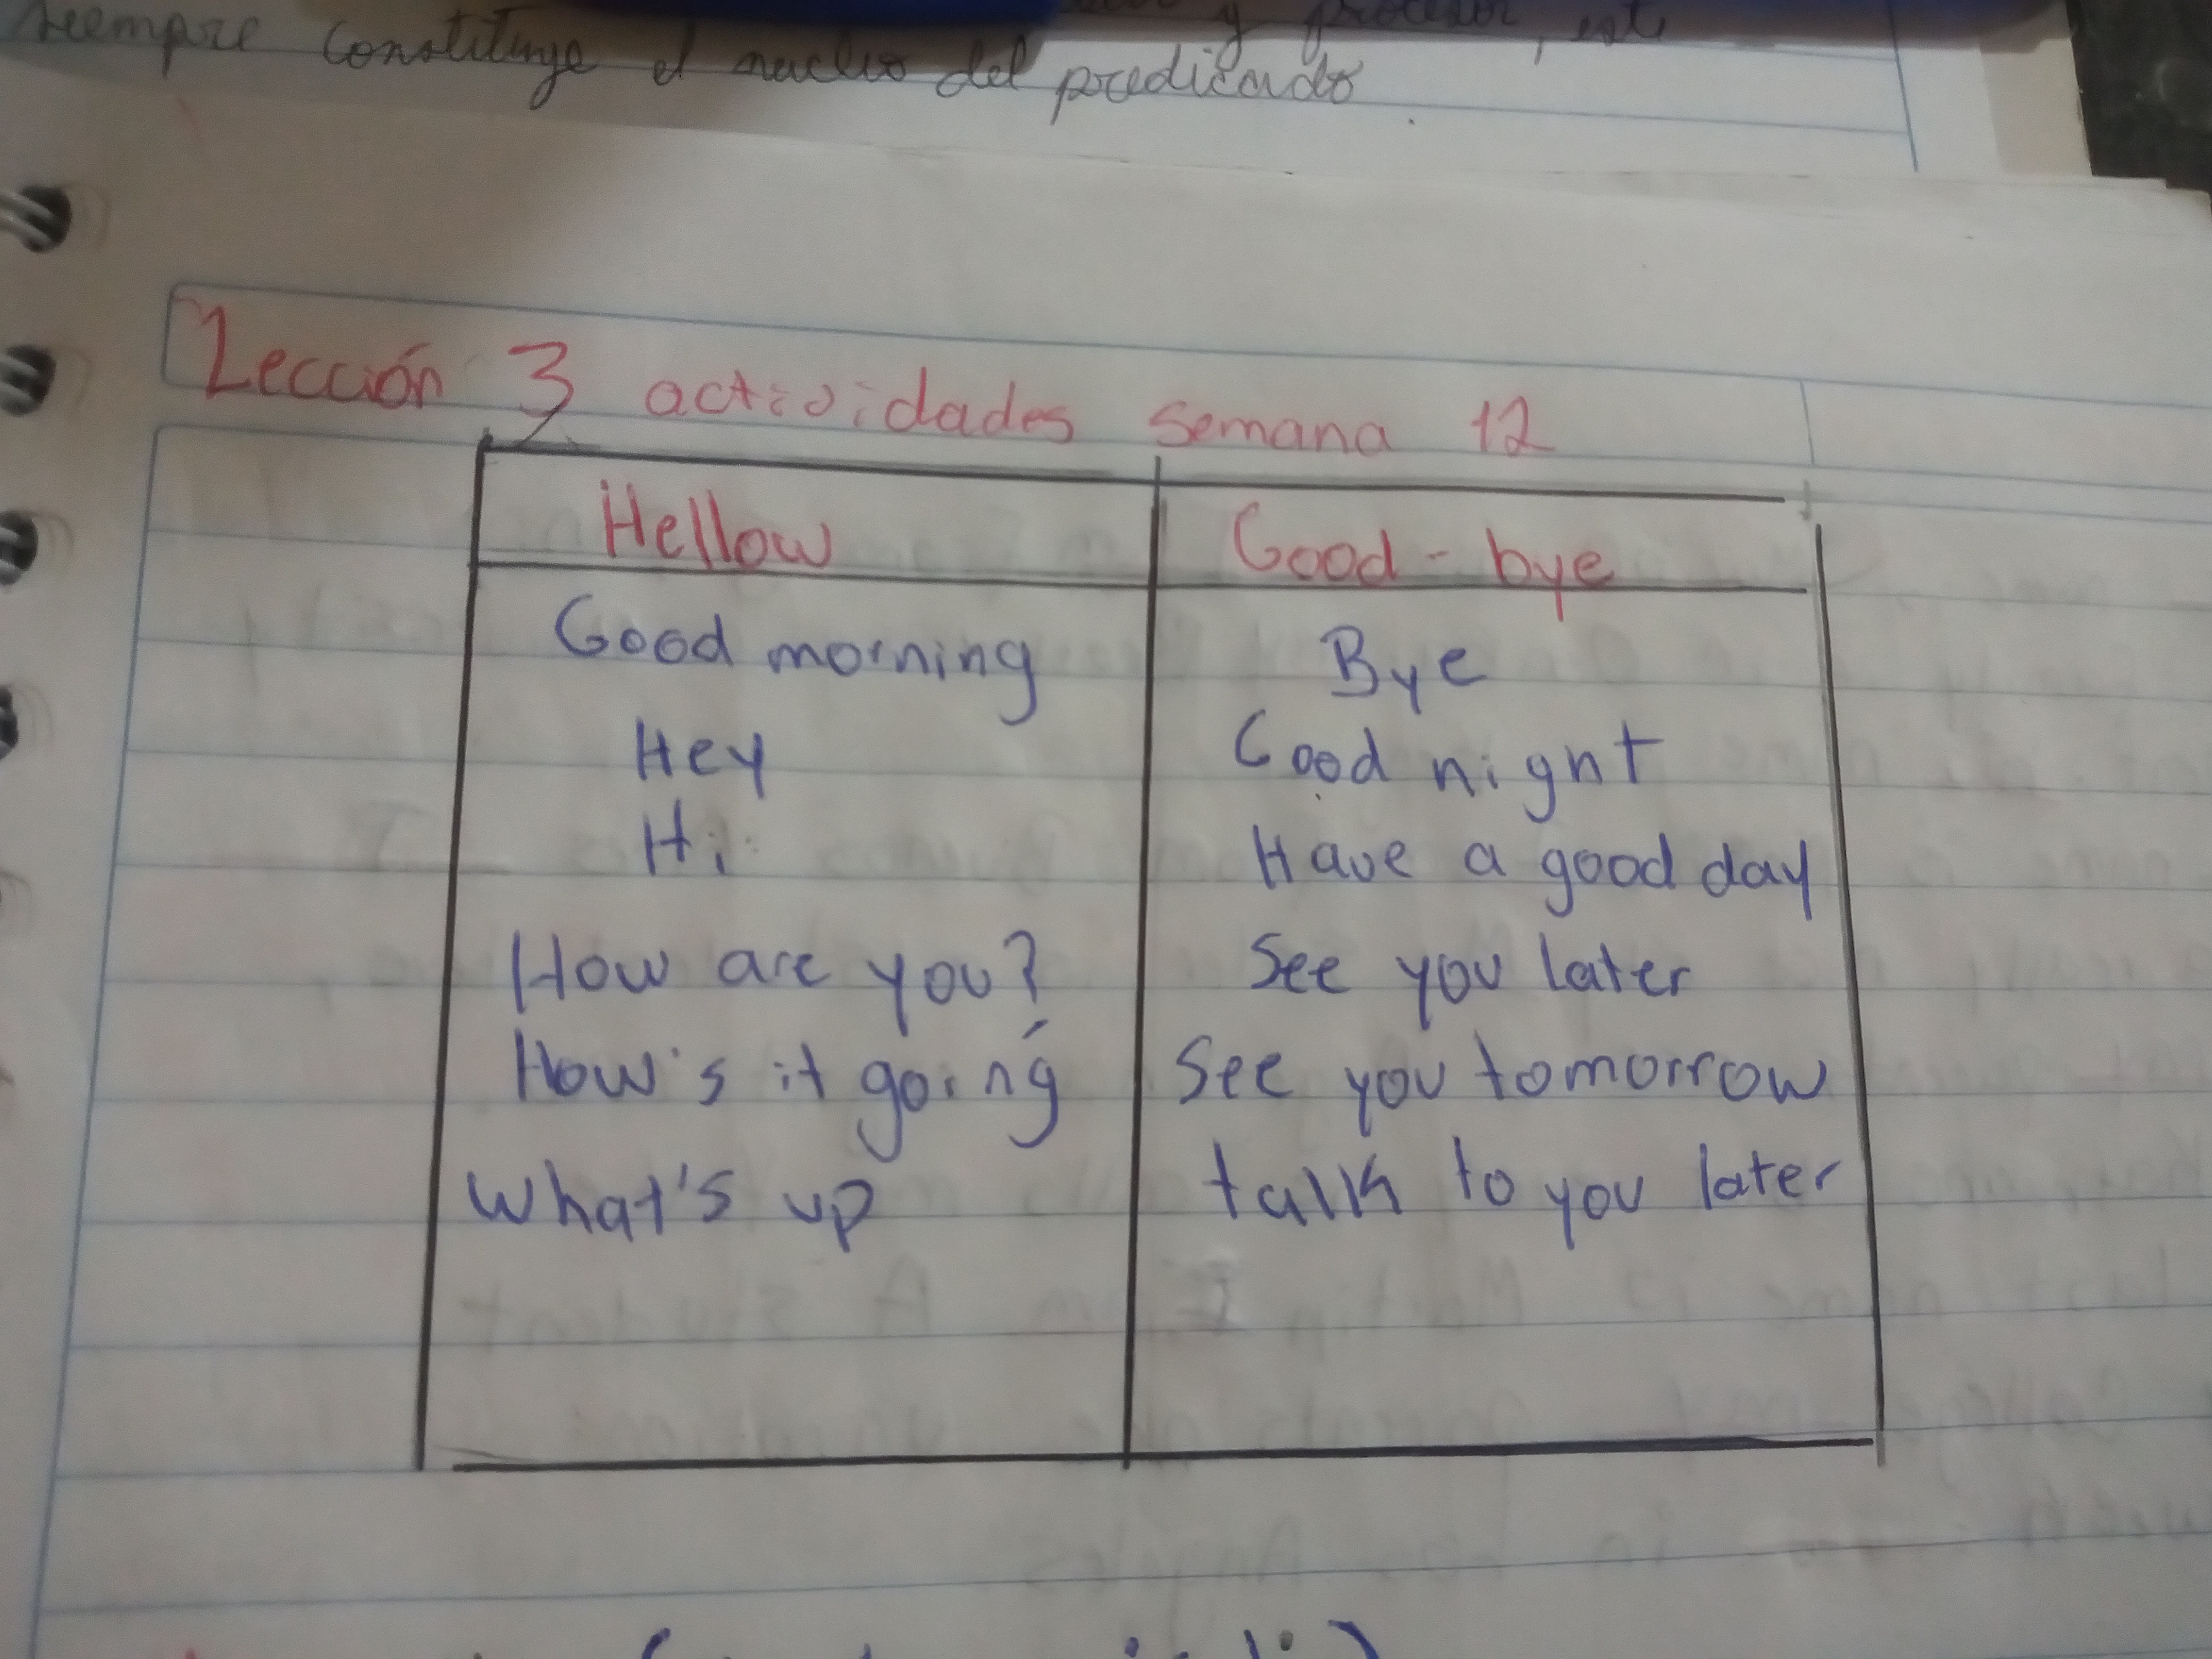 siempre constituye el nucleo del predicado
Lección 3 actividades semana 12
Hellow Good-bye
Good morning Bye
Hey Good night
Hi Have a good day
How are you? See you later
How's it going See you tomorrow
What's up talk to you later